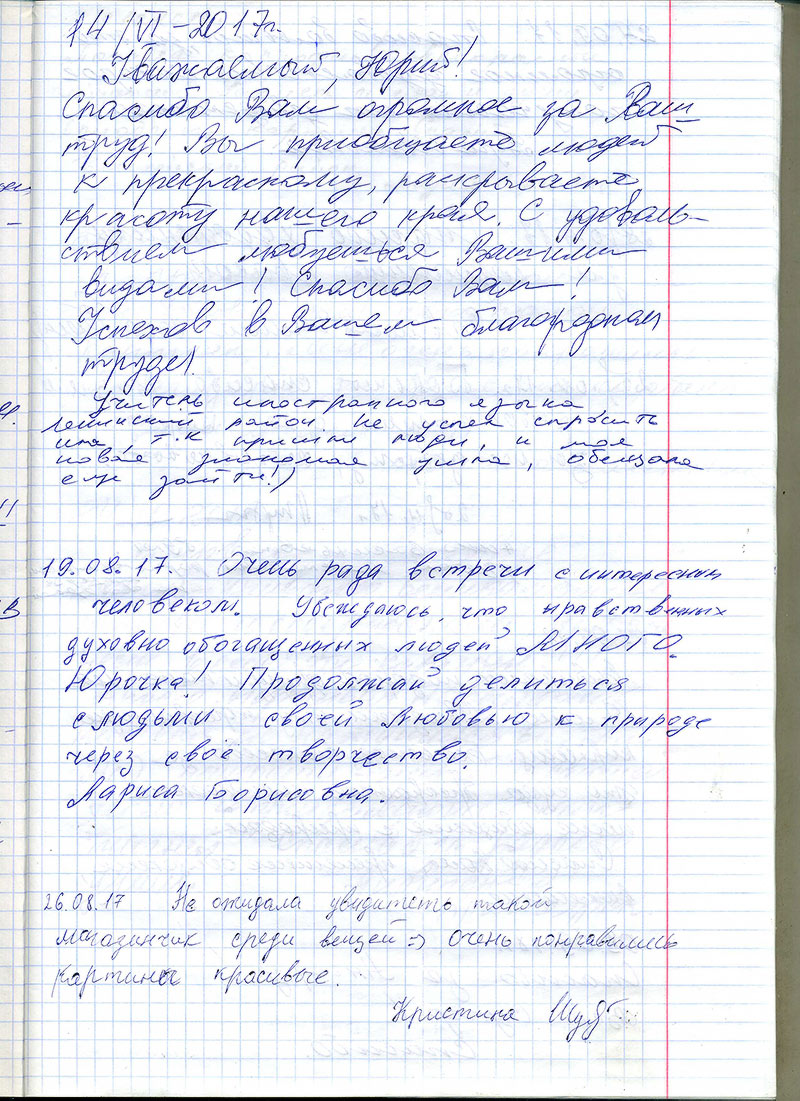 14/VI-2017г.
Уважаемый, Юрий!
Спасибо Вам огромное за Ваш
труд! Вы приобщаете людей
к прекрасному, раскрываете
красоту нашего края. С удоволь-
ствием любуешься Вашими
видами! Спасибо Вам!
Успехов в Вашем благородном
труде!
Учитель иностранного языка,
Ленинский район. Не успел спросить
имя, т.к пришли люди, и моя
новая знакомая ушла, обещала
ещё зайти!)
19.08.17. Очень рада встречи с интересным
человеком. Убеждаюсь, что нравственных
духовно обогащенных людей МНОГО.
Юрочка! Продолжай делиться
с людьми своей любовью к природе
через своё творчество.
Лариса Борисовна.
26.08.17 Не ожидала увидитеть такой
магазинчик среди вещей =) Очень понравились
картины красивые.
Кристина